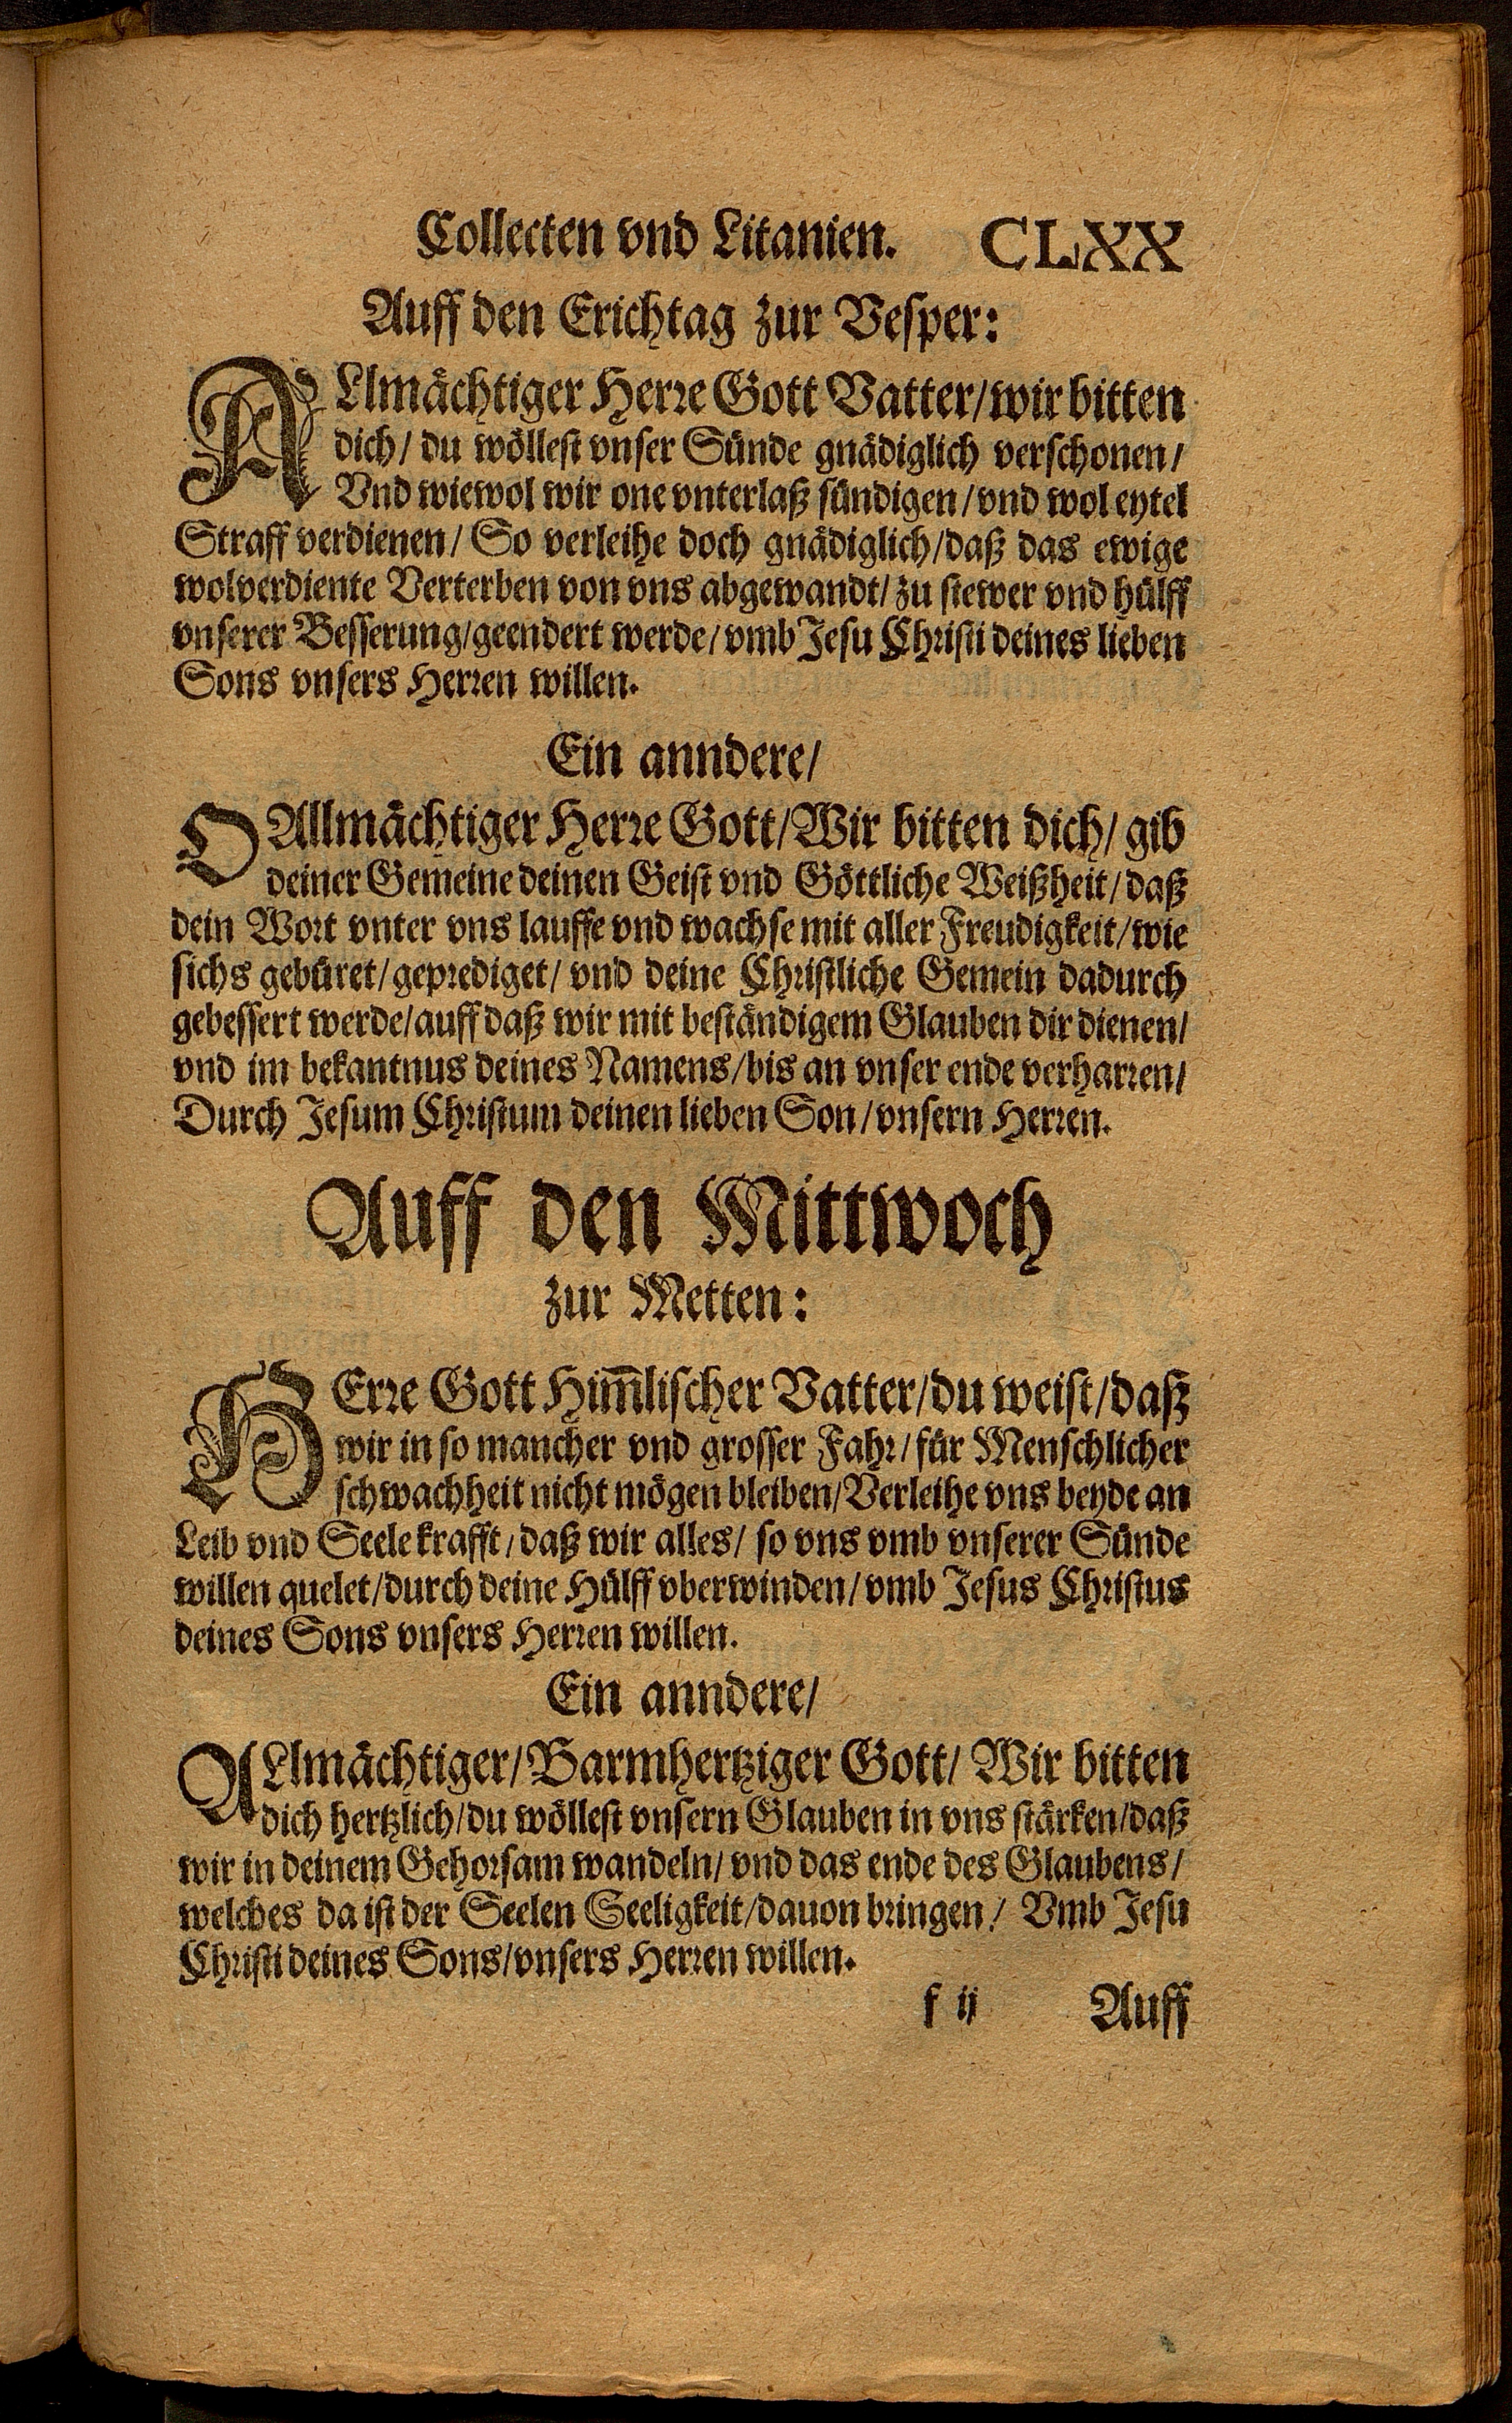 Collecten vnd Litanien. CLXX
Auff den Erichtag zur Vesper:
ALlmächtiger Herre Gott Vatter/wir bitten
dich/ du wöllest vnser Sünde gnädiglich verschonen/
Vnd wiewol wir one vnterlaß sündigen/vnd wol eytel
Straff verdienen/ So verleihe doch gnädiglich/daß das ewige
wolverdiente Verterben von vns abgewandt/zu stewer vnd hülff
vnserer Besserung/geendert werde/vmb Jesu Christi deines lieben
Sons vnsers Herren willen.
Ein anndere/
O Allmächtiger Herre Gott/Wir bitten dich/ gib
deiner Gemeine deinen Geist vnd Göttliche Weißheit/daß
dein Wort vnter vns lauffe vnd wachse mit aller Freudigkeit/wie
sichs gebüret/geprediget/ vnd deine Christliche Gemein dadurch
gebessert werde/auff daß wir mit beständigem Glauben dir dienen/
vnd im bekantnus deines Namens/bis an vnser ende verharren/
Durch Jesum Christum deinen lieben Son/vnsern Herren.
Auff den Mittwoch
zur Metten:
HErre Gott Him̄lischer Vatter/du weist/daß
wir in so mancher vnd grosser Fahr/für Menschlicher
schwachheit nicht mögen bleiben/Verleihe vns beyde an
Leib vnd Seele krafft/daß wir alles/ so vns vmb vnserer Sünde
willen quelet/durch deine Hülff vberwinden/vmb Jesus Christus
deines Sons vnsers Herren willen.
Ein anndere/
ALlmächtiger/Barmhertziger Gott/ Wir bitten
dich hertzlich/du wöllest vnsern Glauben in vns stärken/daß
wir in deinem Gehorsam wandeln/vnd das ende des Glaubens/
welches da ist der Seelen Seeligkeit/dauon bringen/ Vmb Jesu
Christi deines Sons/vnsers Herren willen.
f ij Auff